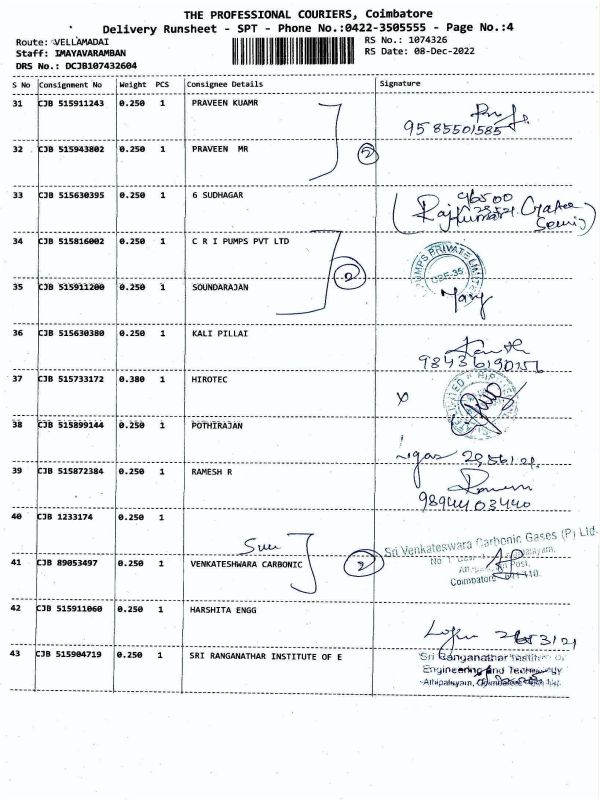 THE PROFESSIONAL COURIERS, Coimbatore
Delivery Runsheet - SPT - Phone No.:0422-3505555 - Page No.:4
Route: VELLAMADAI
RS No.: 1074326
Staff: IMAYAVARAMBAN
RS Date: 08-Dec-2022
DRS No.: DCJB107432604
S No Consignment No Weight PCS Consignee Details Signature
31 CJB 515911243 0.250 1 PRAVEEN KUAMR
9585501585
32 CJB 515943802 0.250 1 PRAVEEN MR
2
33 CJB 515630395 0.250 1 G SUDHAGAR
96500
Rajkumar
34 CJB 515816002 0.250 1 C R I PUMPS PVT LTD
PUMPS PRIVATE LIMITED
CBE-35
2
35 CJB 515911200 0.250 1 SOUNDARAJAN
36 CJB 515630380 0.250 1 KALI PILLAI
37 CJB 515733172 0.380 1 HIROTEC
x
38 CJB 515899144 0.250 1 POTHIRAJAN
39 CJB 515872384 0.250 1 RAMESH R
9894403440
40 CJB 1233174 0.250 1
41 CJB 89053497 0.250 1 VENKATESHWARA CARBONIC
2
Sri Venkateswara Carbonic Gases (P) Ltd.
Coimbatore - 641 110.
42 CJB 515911060 0.250 1 HARSHITA ENGG
43 CJB 515904719 0.250 1 SRI RANGANATHAR INSTITUTE OF E
Sri Ranganathar Institute of
Engineering and Technology
Athipalayam, Coimbatore